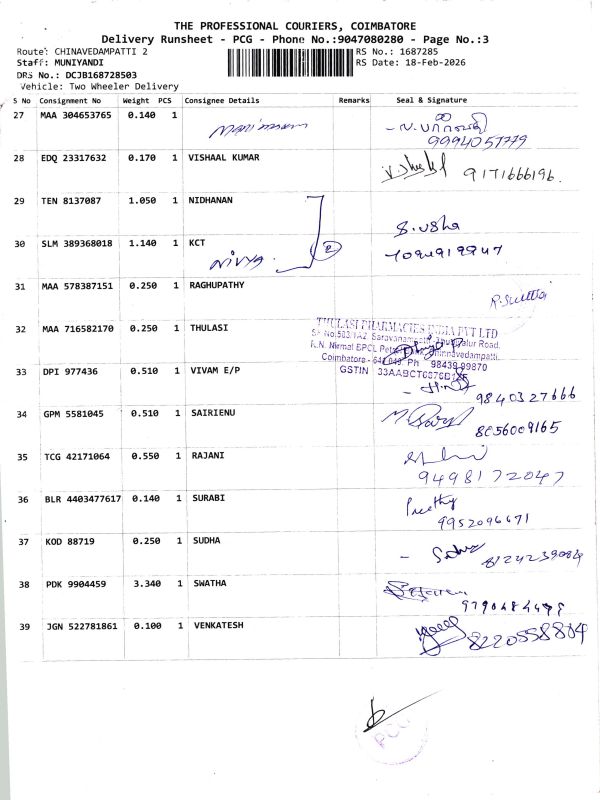 THE PROFESSIONAL COURIERS, COIMBATORE
Delivery Runsheet - PCG - Phone No.:9047080280 - Page No.:3
Route: CHINAVEDAMPATTI 2
RS No.: 1687285
Staff: MUNIYANDI
RS Date: 18-Feb-2026
DRS No.: DCJB168728503
Vehicle: Two Wheeler Delivery
S No Consignment No Weight PCS Consignee Details Remarks Seal & Signature
27 MAA 304653765 0.140 1
9994051779
28 EDQ 23317632 0.170 1 VISHAAL KUMAR
9171666196.
29 TEN 8137087 1.050 1 NIDHANAN
S.USha
30 SLM 389368018 1.140 1 KCT
NIVYA. 2
31 MAA 578387151 0.250 1 RAGHUPATHY
32 MAA 716582170 0.250 1 THULASI
THULASI PHARMACIES INDIA PVT LTD
Coimbatore - 641 049 Ph 98439 99870
33 DPI 977436 0.510 1 VIVAM E/P
GSTIN
9840327666
34 GPM 5581045 0.510 1 SAIRIENU
8056009165
35 TCG 42171064 0.550 1 RAJANI
9498172047
36 BLR 4403477617 0.140 1 SURABI
Preethy
9952096671
37 KOD 88719 0.250 1 SUDHA
38 PDK 9904459 3.340 1 SWATHA
39 JGN 522781861 0.100 1 VENKATESH
8220558804
PCG